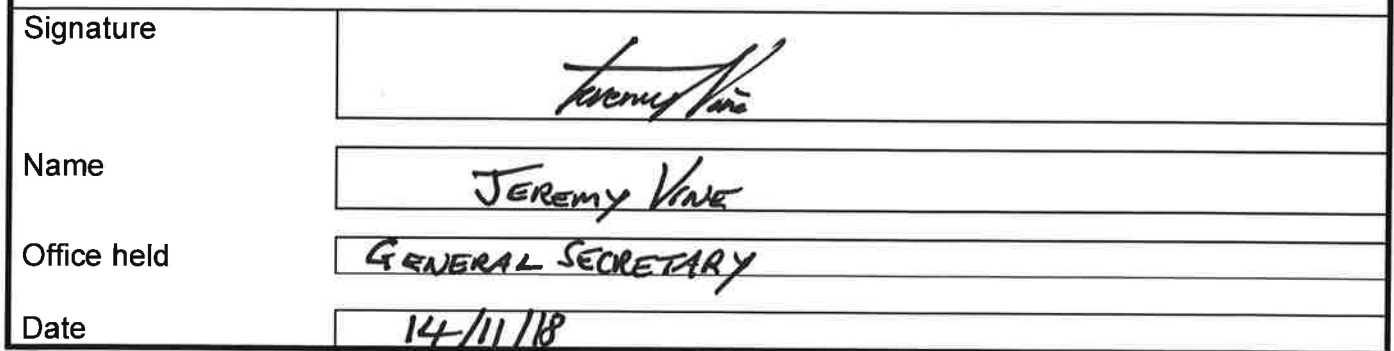 Signature Jeremy Vine
Name JEREMY VINE
Office held GENERAL SECRETARY
Date 14/11/18